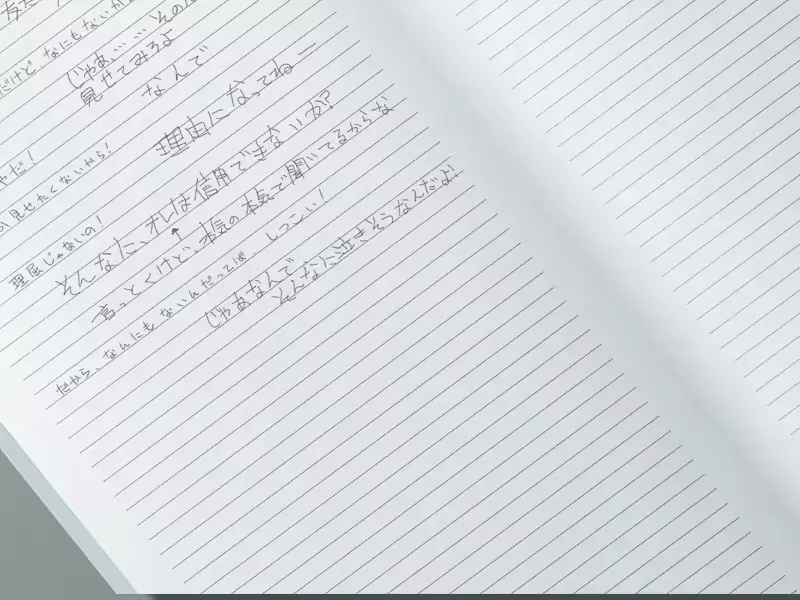 友だ
だけど なにもないか
じゃあ、……その
見せてみろよ
なんで
やだ!
見せたくないから!
理由になってねー
理屈じゃないの!
そんなに、オレは信用できないか?
↑
言っとくけど、本気の本気で聞いてるからな
だから、なんにもないんだってば しつこい!
じゃあなんで
そんなに泣きそうなんだよ!